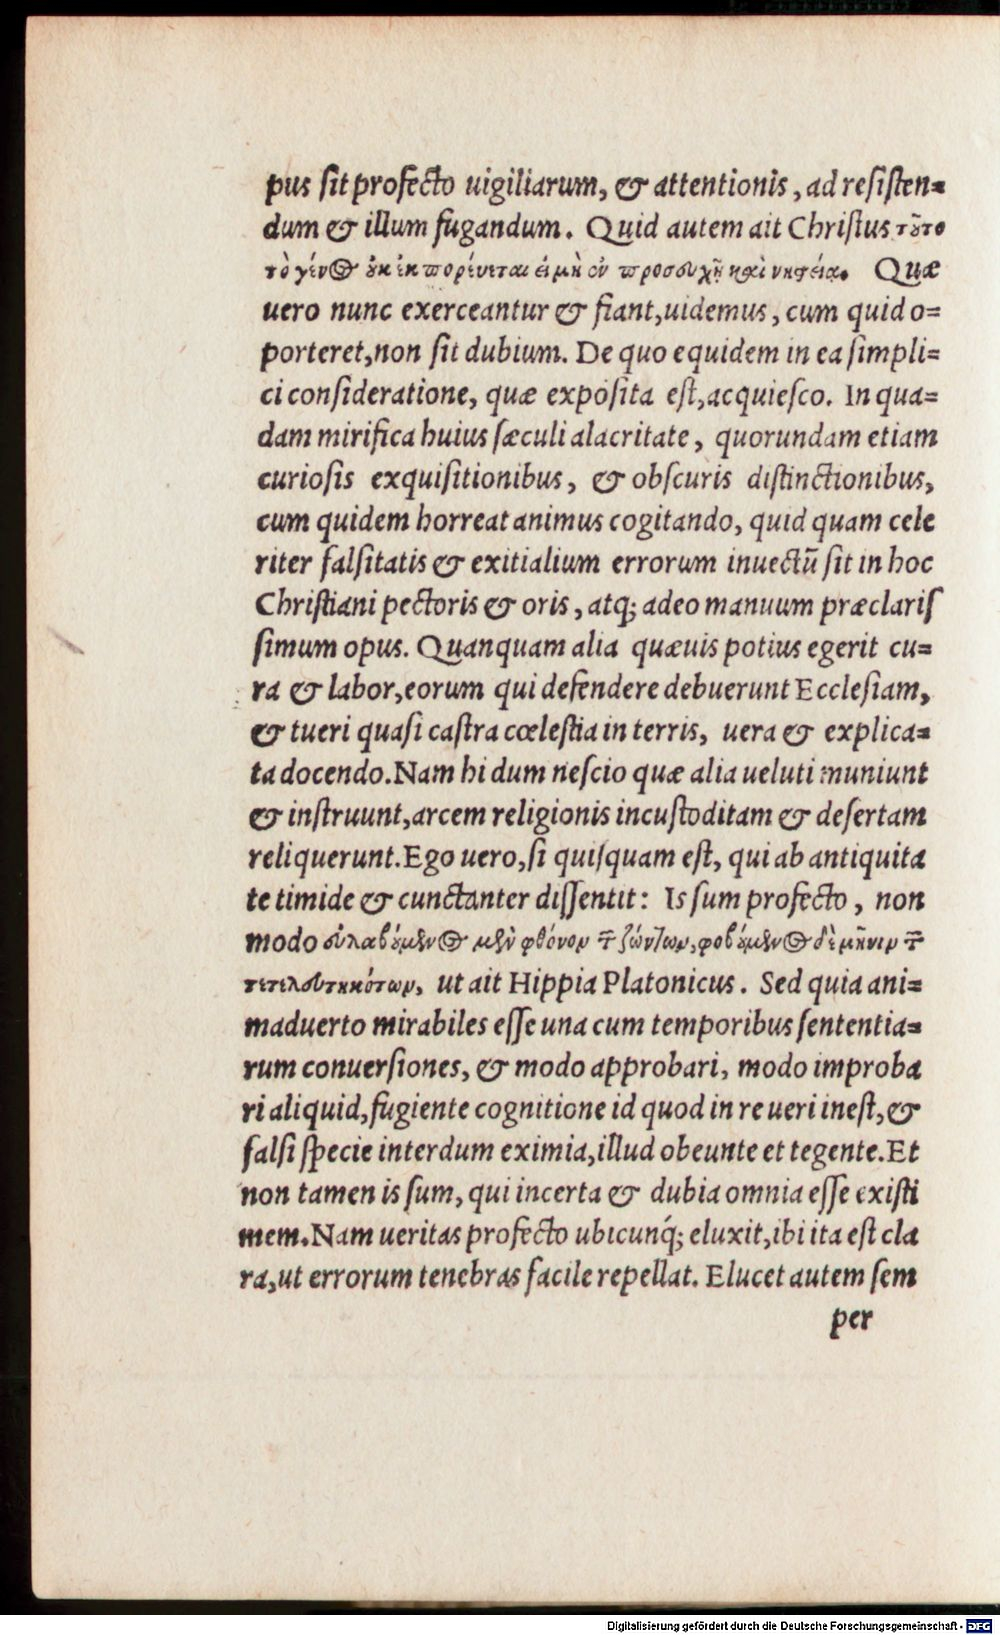 pus sit profecto uigiliarum, & attentionis, ad resisten=
dum & illum fugandum. Quid autem ait Christus τοῦτο
τὸ γένος οὐκ ἐκπορεύεται εἰ μὴ ἐν προσευχῇ καὶ νηστείᾳ. Quæ
uero nunc exerceantur & fiant, uidemus, cum quid o=
porteret, non sit dubium. De quo equidem in ea simpli=
ci consideratione, quæ exposita est, acquiesco. In qua=
dam mirifica huius sæculi alacritate, quorundam etiam
curiosis exquisitionibus, & obscuris distinctionibus,
cum quidem horreat animus cogitando, quid quam cele
riter falsitatis & exitialium errorum inuectũ sit in hoc
Christiani pectoris & oris, atq; adeo manuum præclaris
simum opus. Quanquam alia quæuis potius egerit cu=
ra & labor, eorum qui defendere debuerunt Ecclesiam,
& tueri quasi castra cœlestia in terris, uera & explica=
ta docendo. Nam hi dum nescio quæ alia ueluti muniunt
& instruunt, arcem religionis incustoditam & desertam
reliquerunt. Ego uero, si quisquam est, qui ab antiquita
te timide & cunctanter dissentit: Is sum profecto, non
modo εὐλαβούμενος μὲν φθόνον τῶν ζώντων, φοβούμενος δὲ μῆνιν τῶν
τετελευτηκότων, ut ait Hippia Platonicus. Sed quia ani=
maduerto mirabiles esse una cum temporibus sententia=
rum conuersiones, & modo approbari, modo improba
ri aliquid, fugiente cognitione id quod in re ueri inest, &
falsi specie interdum eximia, illud obeunte et tegente. Et
non tamen is sum, qui incerta & dubia omnia esse existi
mem. Nam ueritas profecto ubicunq́; eluxit, ibi ita est cla
ra, ut errorum tenebras facile repellat. Elucet autem sem
per
Digitalisierung gefördert durch die Deutsche Forschungsgemeinschaft - DFG